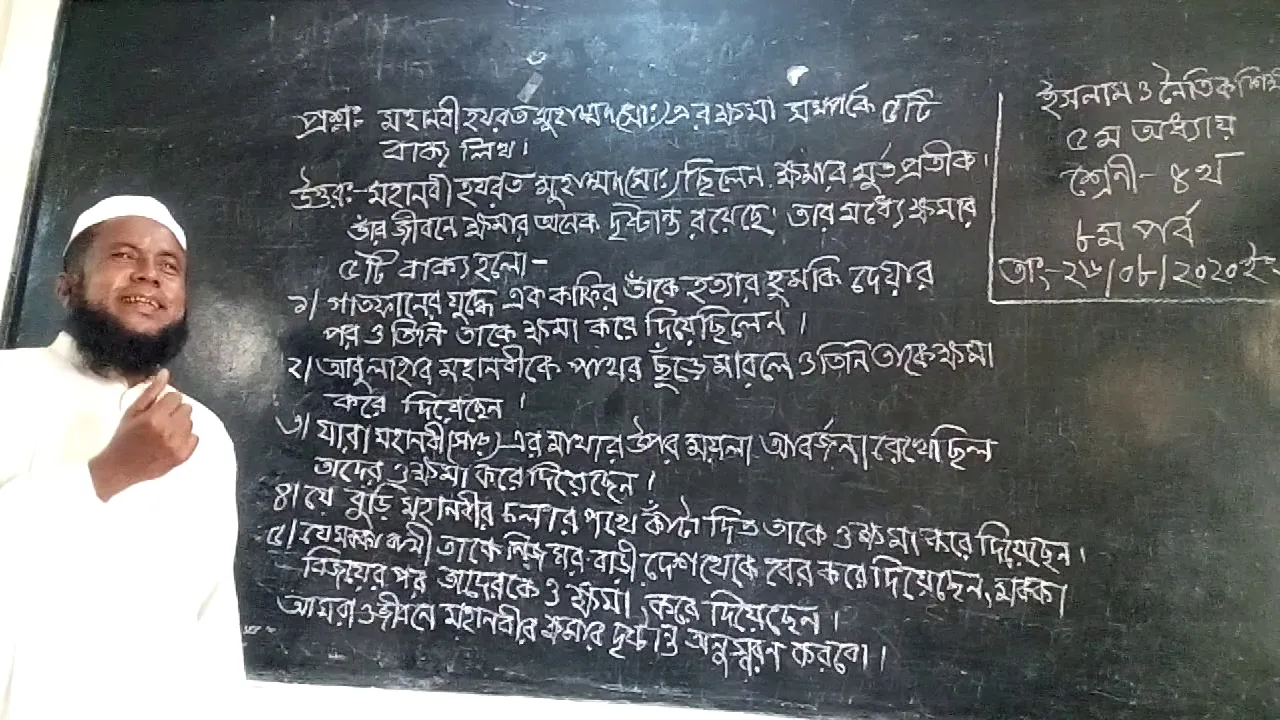 প্রশ্ন:- মহানবী হযরত মুহাম্মদ(সাঃ)এর ক্ষমা সমপর্কে ৫টি
বাক্য লিখ।
উত্তর:- মহানবী হযরত মুহাম্মদ(সাঃ) ছিলেন ক্ষমার মুর্তপ্রতীক।
তাঁর জীবনে ক্ষমার অনেক দৃষ্টান্ত রয়েছে। তার মধ্যে ক্ষমার
৫টি বাক্য হলো-
১/ গাতফানের যুদ্ধে এক কাফির তাঁকে হত্যার হুমকি দেয়ার
পর ও তিনি তাকে ক্ষমা করে দিয়েছিলেন।
২/ আবুলাহাব মহানবীকে পাথর ছুঁড়ে মারলে ও তিনি তাকে ক্ষমা
করে দিয়েছেন।
৩/ যারা মহানবী(সাঃ) এর মাথার উপর ময়লা আবর্জনা রেখেছিল
তাদের ও ক্ষমা করে দিয়েছেন।
৪। যে বুড়ি মহানবীর চলার পথে কাঁটা দিত তাকে ও ক্ষমা করে দিয়েছেন।
৫। যে মক্কা বাসী তাকে নিজ ঘর-বাড়ী দেশ থেকে বের করে দিয়েছেন, মক্কা
বিজয়ের পর তাদেরকে ও ক্ষমা করে দিয়েছেন।
আমরা ও জীবনে মহানবীর ক্ষমার দৃষ্টান্ত অনুস্বরন করবো।
ইসলাম ও নৈতিক শিক্ষা
৫ম অধ্যায়
শ্রেনী- ৪র্থ
৮ম পর্ব
তাং-২৬/০৮/২০২০ইং